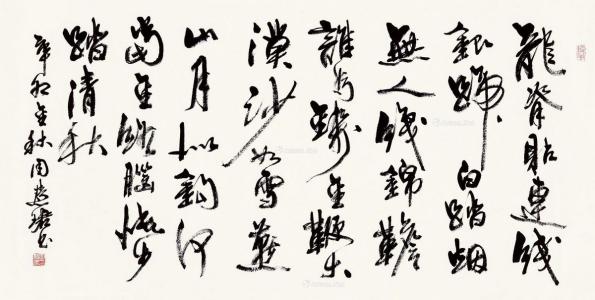 龍脊貼連錢
銀蹄白踏烟
無人織錦韂
誰為鑄金鞭大
漠沙如雪燕
山月似鉤何
當金絡腦快步
踏清秋
辛卯金秋周慧珺书